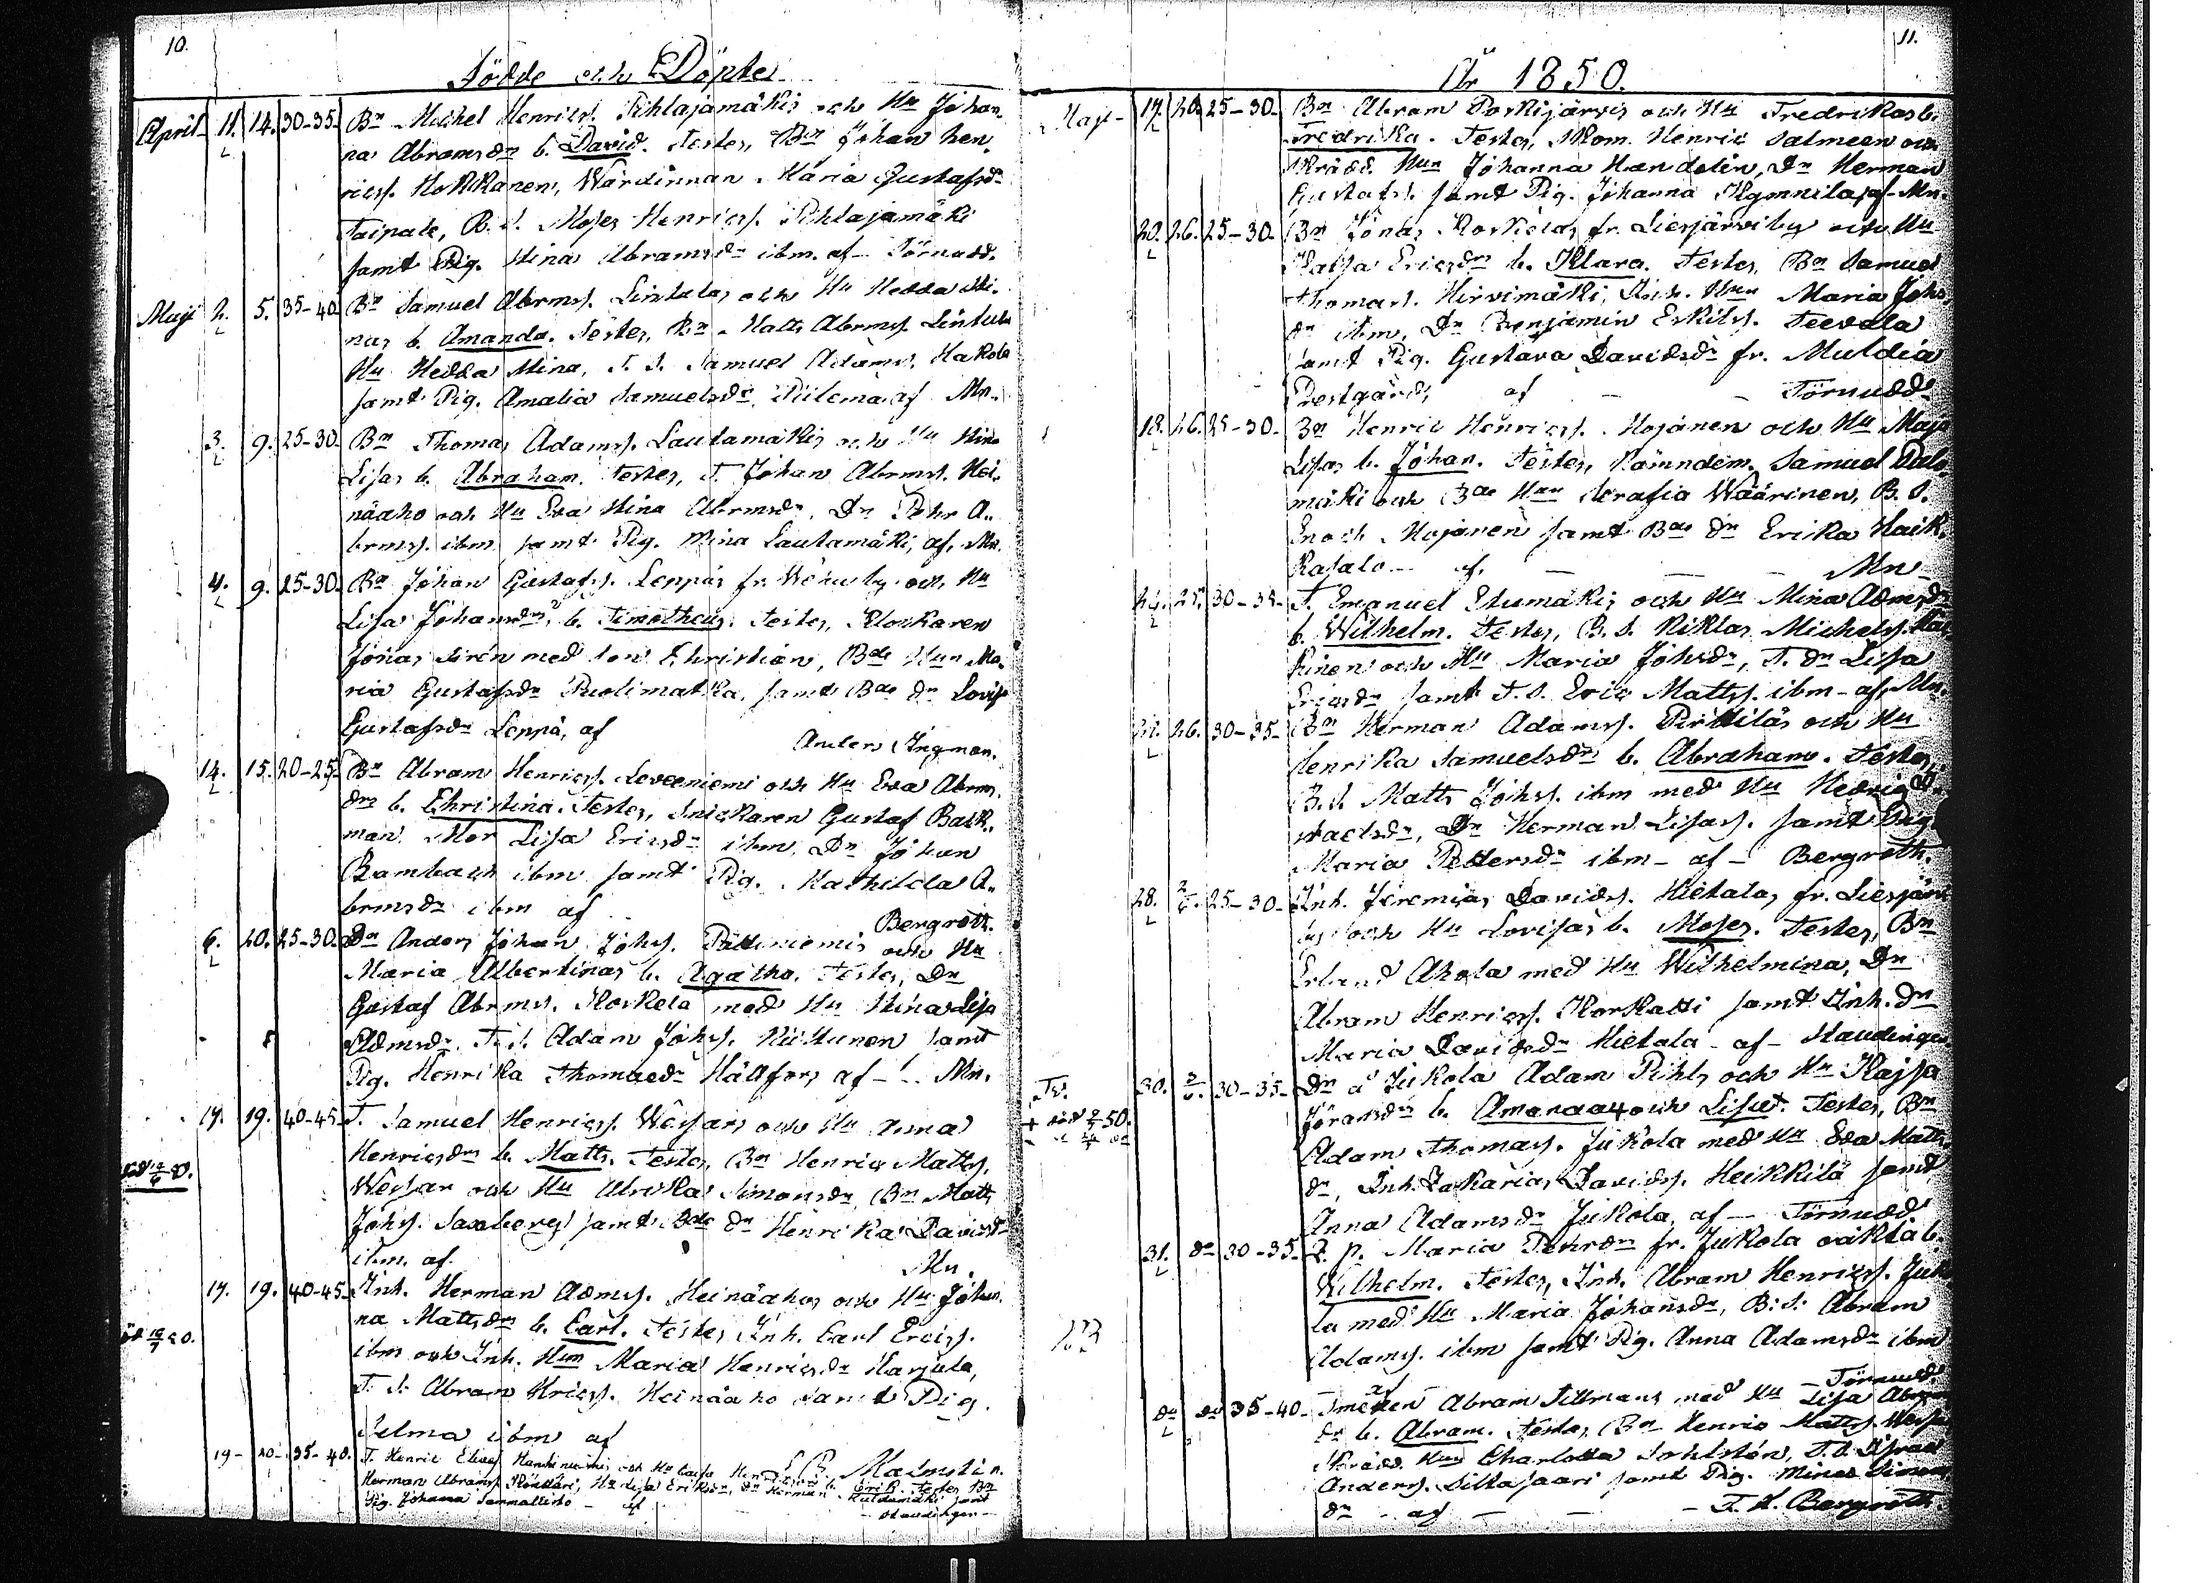 10.
Födde och Döpte
April 11. 14. 30-35. Bn Michel Henricss. Pihlajamäkis och Hu Johan,
na Abramsdrs b. David. Testes, Bn Johan Hen,
ricss. Hokkanen, Wärdinnan Maria Gustafsdr
Taipale, B. S. Moses Henricss. Pihlajamäki
samt Pig. Stina Abramsdr ibm. af Törnudd.
Maji 2. 5. 35-40 Bn Samuel Abrmss. Lintulas och Hu Hedda Sti,
nas b. Amanda. Testes, Bn Matts Abrmss. Lintula
Hu Hedda Stina, T. S. Samuel Adamss. Hakola
samt Pig. Amalia Samuelsdr. Piilema af Mn.
3. 9. 25-30. Bn Thomas Adamss. Lautamäkis och Hu Stina
Lisas b. Abraham. Testes, T. Johan Abrmss. Hei,
näaho och Hu Eva Stina Abrmsdr, Dn Pehr A,,
brmss. ibm samt Pig. Mina Lautamäki, af. Mn.
4. 9. 25-30. Bn Johan Gustafss. Leppäs fr. by och Hu
Lisa Johansdrs b. Timotheus. Testes, Klockaren
Jonas Sirén med son Christian, Bde Hun Ma,
ria Gustafsdr Puolimatka, samt Bde dr Lovisa
Gustafsdr Leppä, af
Anders Ingman.
14. 15. 20-25. Bn Abram Henricss. Leveeniemi och Hu Eva Abrms,
drs b. Christina. Testes, Snickaren Gustaf Back,,
man. Mor Lisa Ericsdr ibm. Dn Johan
Bambach ibm samt Pig. Mathilda A,,
brmsdr ibm af
Bergroth.
6. 20. 25-30. Dn Anders Johan Johss. Pättiniemis och Hu
Maria Albertinas b. Agatha. Testes, Dn
Gustaf Abrmss. Koskela med Hu Stina Lisa
Admsdr. T. S. Adam Johss. Niitunen samt
Pig. Henrika Thomasdr Hällfors af - Mn.
17. 19. 40-45. T. Samuel Henricss. Wessars och Hu Anna
Henricsdrs b. Matts. Testes, Bn Henric Mattss.
Wessar och Hu Ulrika Simonsdr, Bn Matts
Johss. Saxberg samt Bde dr Henrika Davidsdr
ibm. af.
Mn.
17. 19. 40-45. Inh. Herman Admss. Heinäahos och Hu Johan,
na Mattsdrs b. Carl. Testes Inh. Carl Ericss.
ibm och Inh. Hun Maria Henricsdr Harjula,
T. S. Abram Hricss. Heinäaho samt Pig.
Selma ibm af
Malmstén.
19 - 20 - 35-40. T. Henric Eliass. Hankiniemis och Hu Caisa b. Eric. Testes Bn
Herman Abramss. Hu Lisa Ericsdr, Dn Herman samt
Pig. Johanna Sammallisto - af - Staudinger -
11.
År 1850.
Maji 17. 20. 25-30. Bn Abram Poikijärvis och Hu Fredrikas b.
Fredrika. Testes, Skom. Henric Salmeen och
Skrädd. Hun Johanna Handolin, Dn Herman
Gustafss. samt Pig. Johanna af Mn.
20. 26. 25-30. Bn Jonas Koskelas fr. Liesjärvi by och Hu
Kaisa Ericsdrs b. Klara. Testes, Bn Samuel
Thomass. Hirvimäki, Inh. Hun Maria Johs,
dr ibm, Dn Benjamin Eskilss. Teevala
samt Pig. Gustava Davidsdr fr. Muldia
Prestgård, af - - Törnudd.
18. 26. 25-30. Bn Henric Henricss. Mojanen och Hu Maja
Lisas b. Johan. Testes, Nämndem. Samuel Palo,
mäki och Bde Hun Serafia Wäärinen, B. S.
Enoch Mojanen samt Bde dr Erika Haik,
kasalo - af. - - Mn -
24. 25. 30-35. T. Emanuel Etumäkis och Hu Mina Admsdrs
b. Wilhelm. Testes, B. S. Niklas Michelss.
kinen och Hu Maria Johsdr, T. dr Lisa
Ericsdr samt T. S. Eric Mattss. ibm - af Mn.
22. 26. 30-35. Bn Herman Adamss. Pirttiläs och Hu
Henrika Samuelsdrs b. Abraham. Testes,
B. S. Matts Johss. ibm med Hu Hedvig
raelsdr, Dn Herman Lisass. samt Pig.
Maria Pettersdr ibm - af - Bergroth.
28. 2/6. 25-30. Inh. Jeremias Davidss. Hietalas fr. Liesjärvi
by och Hu Lovisas b. Moses. Testes, Bn
Erland Ahola med Hu Wilhelmina, Dn
Abram Henricss. Korkatti samt Inh. dr
Maria Davidsdr Hietala - af - Staudinger
Tv.
+ död 50.
30. 2/6. 30-35. Dn å Jukola Adam Pihls och Hu Kajsa
Göransdrs b. Amanda + och Lisa +. Testes, Bn
Adam Thomass. Jukola med Hu Eva Matts,
dr, Inh. Zakarias Davidss. Heikkilä samt
Anna Adamsdr Jukola, af - Törnudd
31. do 30-35. Q. p. Maria Pehrsdrs fr. Jukola oäkta b.
Wilhelm. Testes, Inh. Abram Henricss. Juko,
la med Hu Maria Johansdr, B. S. Abram
Adamss. ibm samt Pig. Anna Adamsdr ibm
af - Törnudd.
do do 35-40. Smeden Abram Tillmans med Hu Lisa Abrams
dr b. Abram. Testes, Bn Henric Mattss. Wessar
Skrädd. Hun Charlotta Sohlstén, T. S. Israel
Anderss. Siltasaari samt Pig. Mina Simons,
dr - af - - F. H. Bergroth.